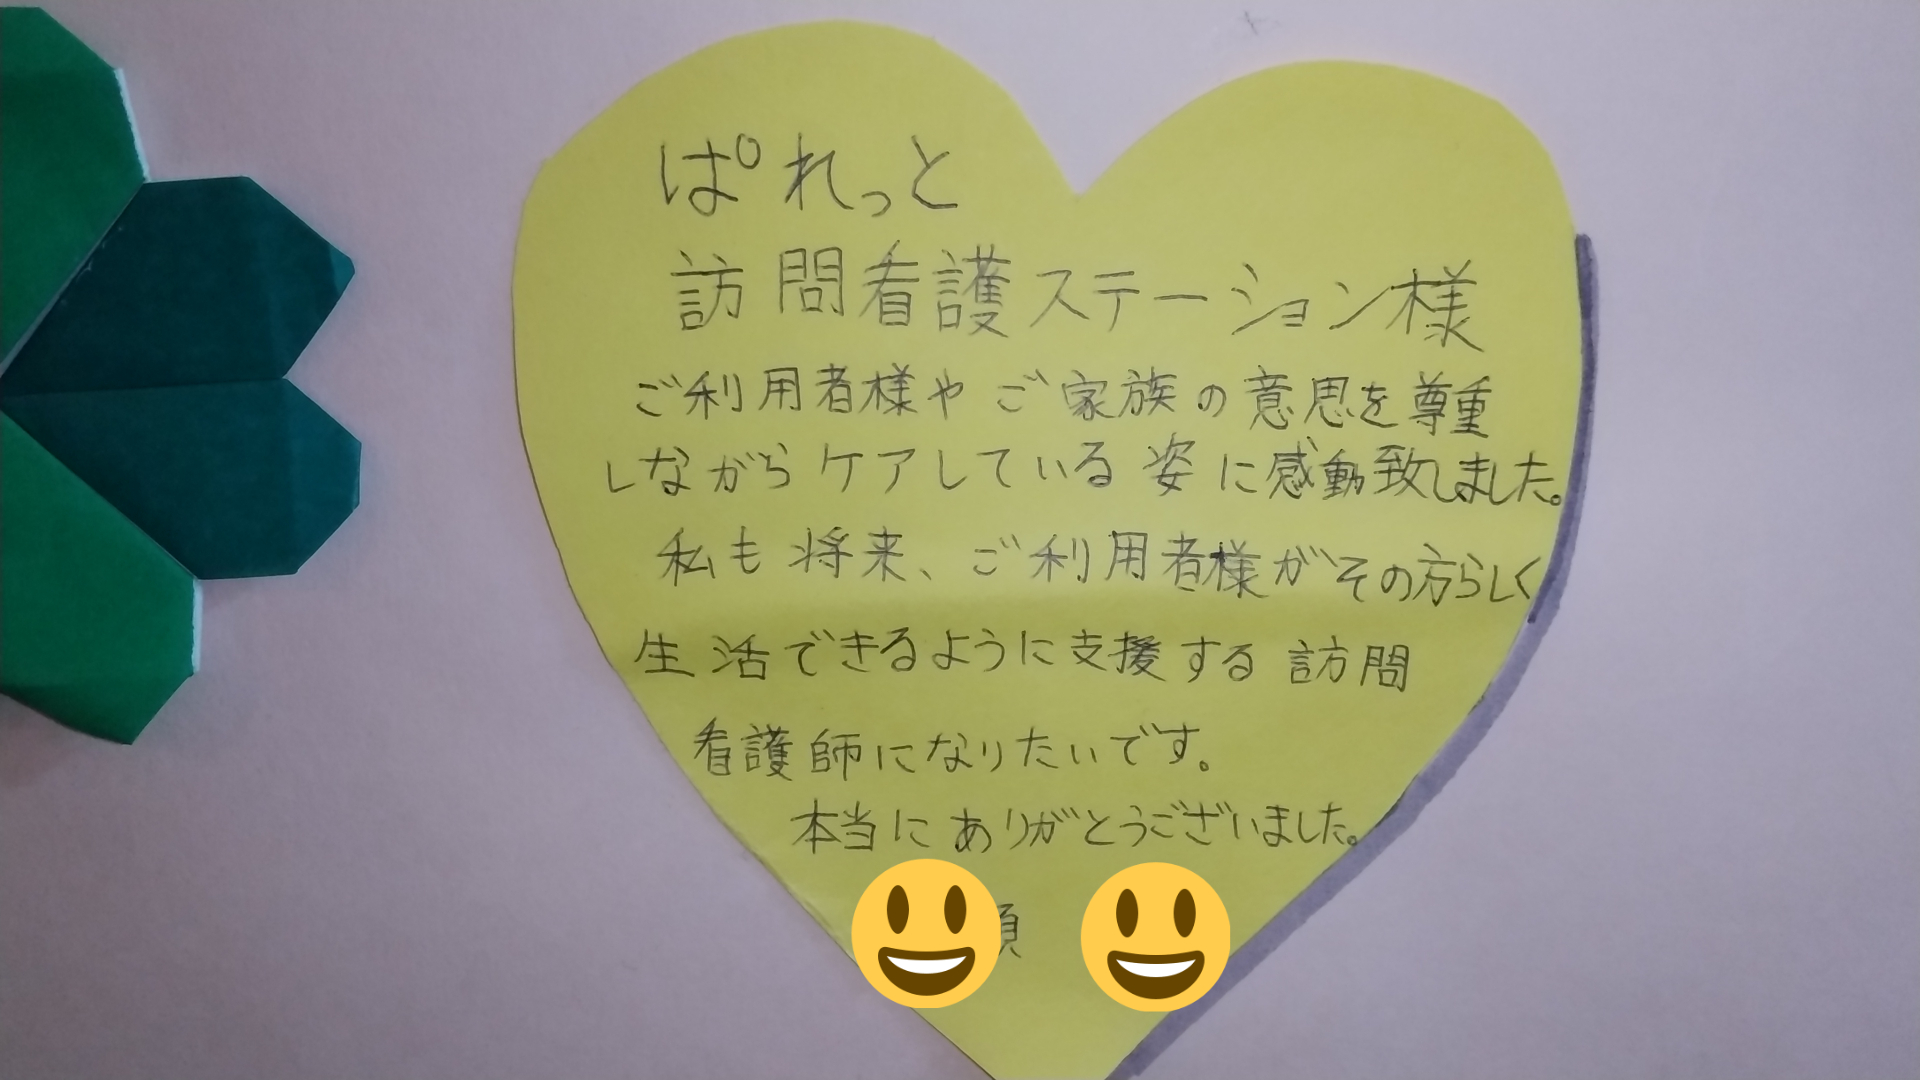 ぱれっと
訪問看護ステーション様
ご利用者様やご家族の意思を尊重
しながらケアしている姿に感動致しました。
私も将来、ご利用者様がその方らしく
生活できるように支援する訪問
看護師になりたいです。
本当にありがとうございました。